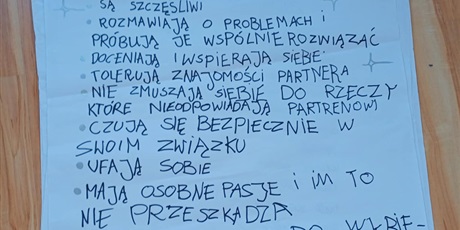 SĄ SZCZĘŚLIWI
• ROZMAWIAJĄ O PROBLEMACH I
PRÓBUJĄ JE WSPÓLNIE ROZWIĄZAĆ
DOCENIAJĄ I WSPIERAJĄ SIEBIE
• TOLERUJĄ ZNAJOMOŚCI PARTNERA
• NIE ZMUSZAJĄ SIEBIE DO RZECZY
KTÓRE NIEODPOWIADAJĄ PARTRENOWI
• CZUJĄ SIĘ BEZPIECZNIE W
SWOIM ZWIĄZKU
• UFAJĄ SOBIE
• MAJĄ OSOBNE PASJE I IM TO
NIE PRZESZKĄDZA
DO WYBIE-